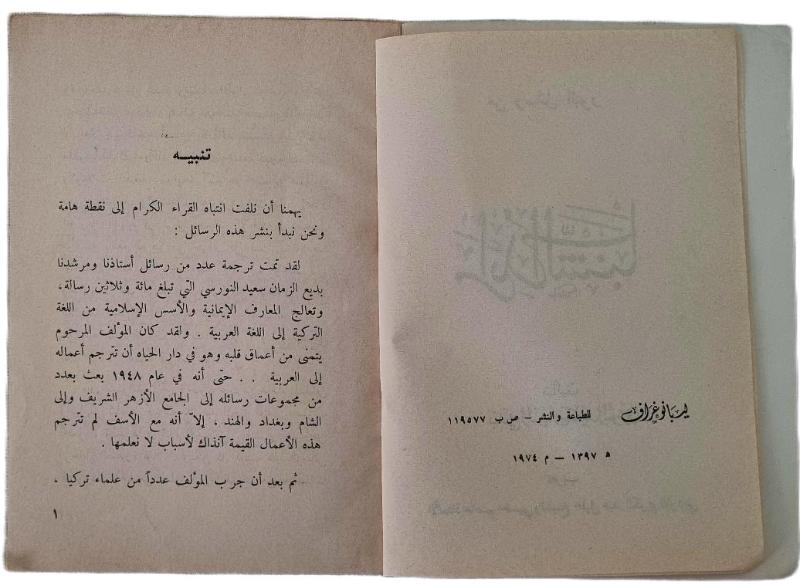 ليبانوغراف للطباعة والنشر – ص ب ١١٩٥٧٧
ه ١٣٩٧ – م ١٩٧٤
تنبيـه
يهمنا أن نلفت انتباه القراء الكرام إلى نقطة هامة
ونحن نبدأ بنشر هذه الرسائل :
لقد تمت ترجمة عدد من رسائل أستاذنا ومرشدنا
بديع الزمان سعيد النورسي التي تبلغ مائة وثلاثين رسالة ،
وتعالج المعارف الإيمانية والأسس الإسلامية من اللغة
التركية إلى اللغة العربية . ولقد كان المؤلف المرحوم
يتمنى من أعماق قلبه وهو في دار الحياه أن تترجم أعماله
إلى العربية . . حتى أنه في عام ١٩٤٨ بعث بعدد
من مجموعات رسائله إلى الجامع الأزهر الشريف وإلى
الشام وبغداد والهند ، إلاّ أنه مع الأسف لم تترجم
هذه الأعمال القيمة آنذاك لأسباب لا نعلمها .
ثم بعد أن جرب المؤلف عدداً من علماء تركيا ،
١